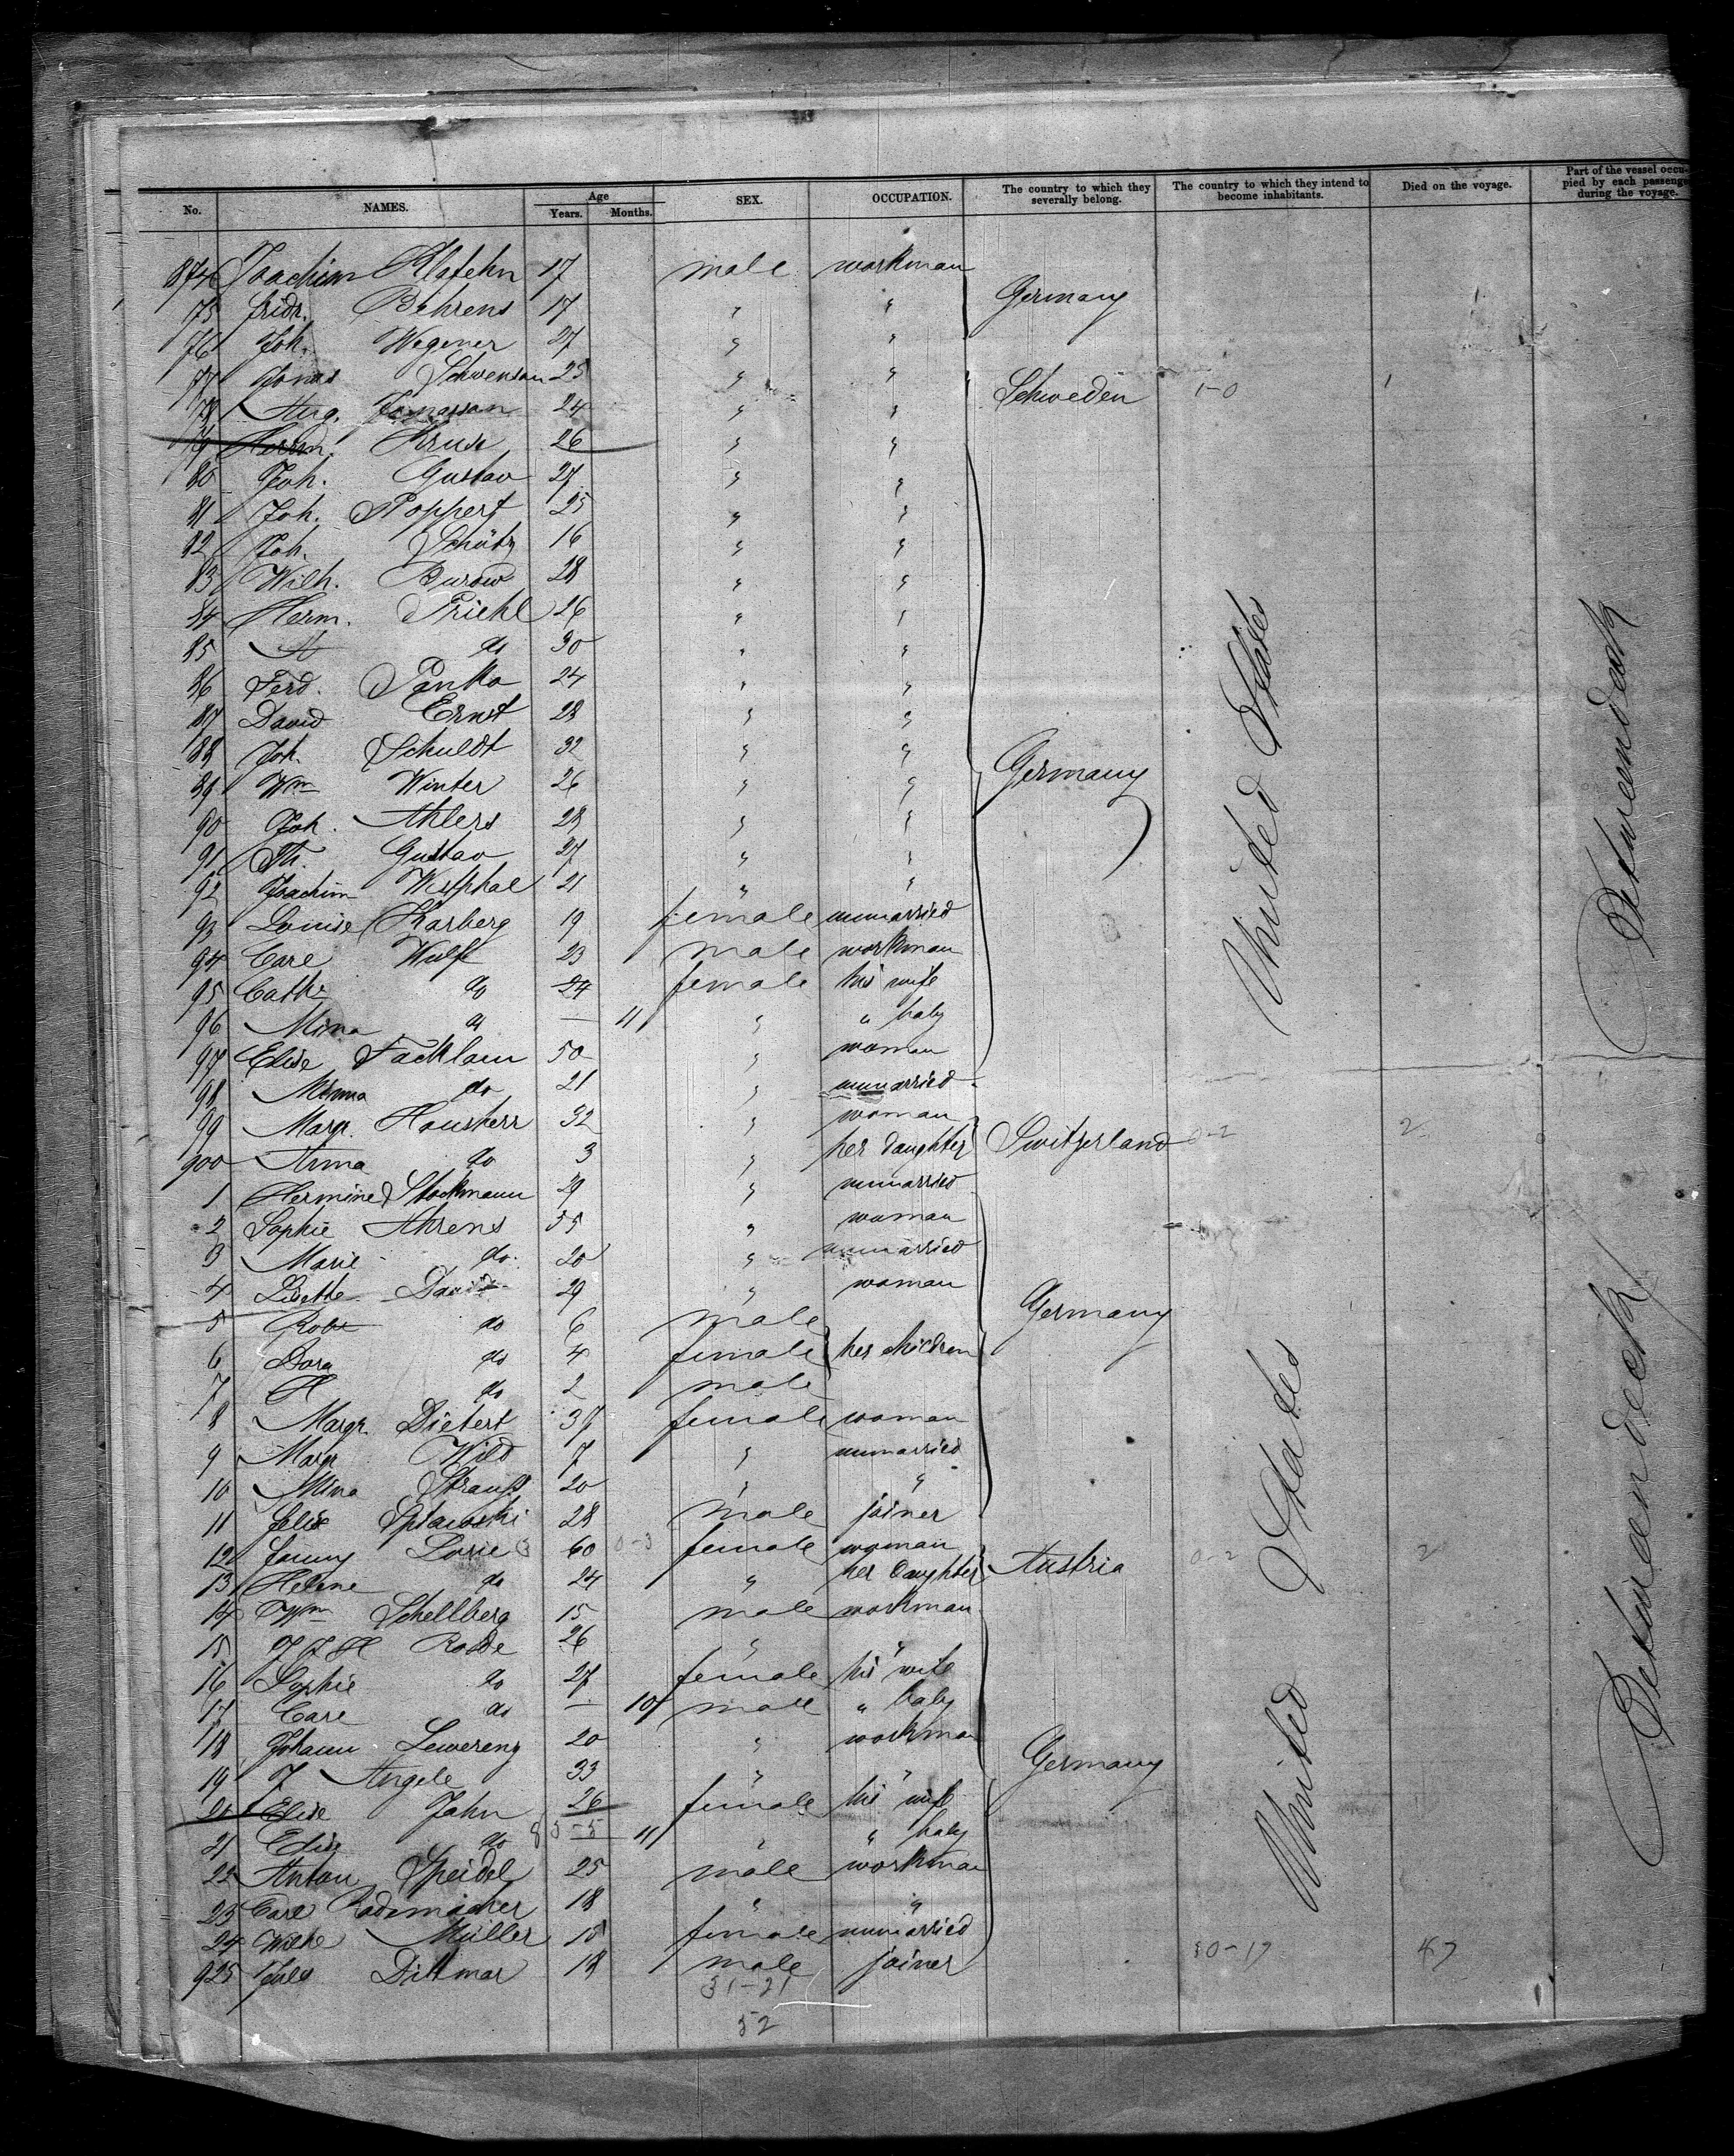 No. NAMES. Age Years. Months. SEX. OCCUPATION. The country to which they severally belong. The country to which they intend to become inhabitants. Died on the voyage. Part of the vessel occupied by each passenger during the voyage.
874 Joachim Klafehn 17 male workman
75 Fridr. Behrens 17 " " Germany
76 Joh. Wegener 27 " "
77 Jonas Schwenson 25 " "
78 Aug. Jonasson 24 " " Schweden 1-0 1
79 Herm. Kruse 26 " "
80 Joh. Gustav 27 " "
81 Joh. Poppert 25 " "
82 Joh. Schütz 16 " "
83 Wilh. Burow 28 " "
84 Herm. Priehl 26 " "
85 A do 30 " "
86 Ferd. Panka 24 " "
87 David Ernst 28 " "
88 Joh. Schuldt 32 " "
89 Wm Winter 26 " " Germany
90 Joh. Ahlers 28 " "
91 Th. Gustav 27 " "
92 Joachim Westphal 21 " "
93 Louise Karberg 19 female unmarried
94 Carl Wulf 23 male workman
95 Cathe do 24 female his wife
96 Mina do — 11 " " baby
97 Elise Facklam 50 " woman
98 Minna do 21 " unmarried
99 Margr. Hausherr 32 " woman
900 Anna do 3 " her daughter Switzerland 0-2 2
1 Hermine Stockmann 29 " unmarried
2 Sophie Ahrens 55 " woman
3 Marie do 20 " unmarried
4 Lisette David 29 " woman
5 Robt do 6 male Germany
6 Dora do 4 female her children
7 H do 2 male
8 Margr. Dietert 37 female woman
9 Margr Wild 7 " unmarried
10 Mina Strauss 20 " "
11 Felix 28 male joiner
12 Fanny Lowe 60 0-3 female woman
13 Helene do 24 " her daughter Austria 0-2 2
14 Wm Schellberg 15 male workman
15 J J H Rohde 26 " "
16 Sophie do 27 female his wife
17 Carl do — 10 male " baby
18 Johann Lewerenz 20 " workman
19 J Angele 33 " " Germany
20 Elise Jahn 26 female his wife
21 Elise do 11 " " baby
22 Anton Speidel 25 male workman
23 Carl Rademacher 18 " "
24 Wilhe Müller 18 female unmarried
925 Juls Dittmar 18 male joiner 30-17 47
31-21
52
United States
United States
Betweendeck
Betweendeck